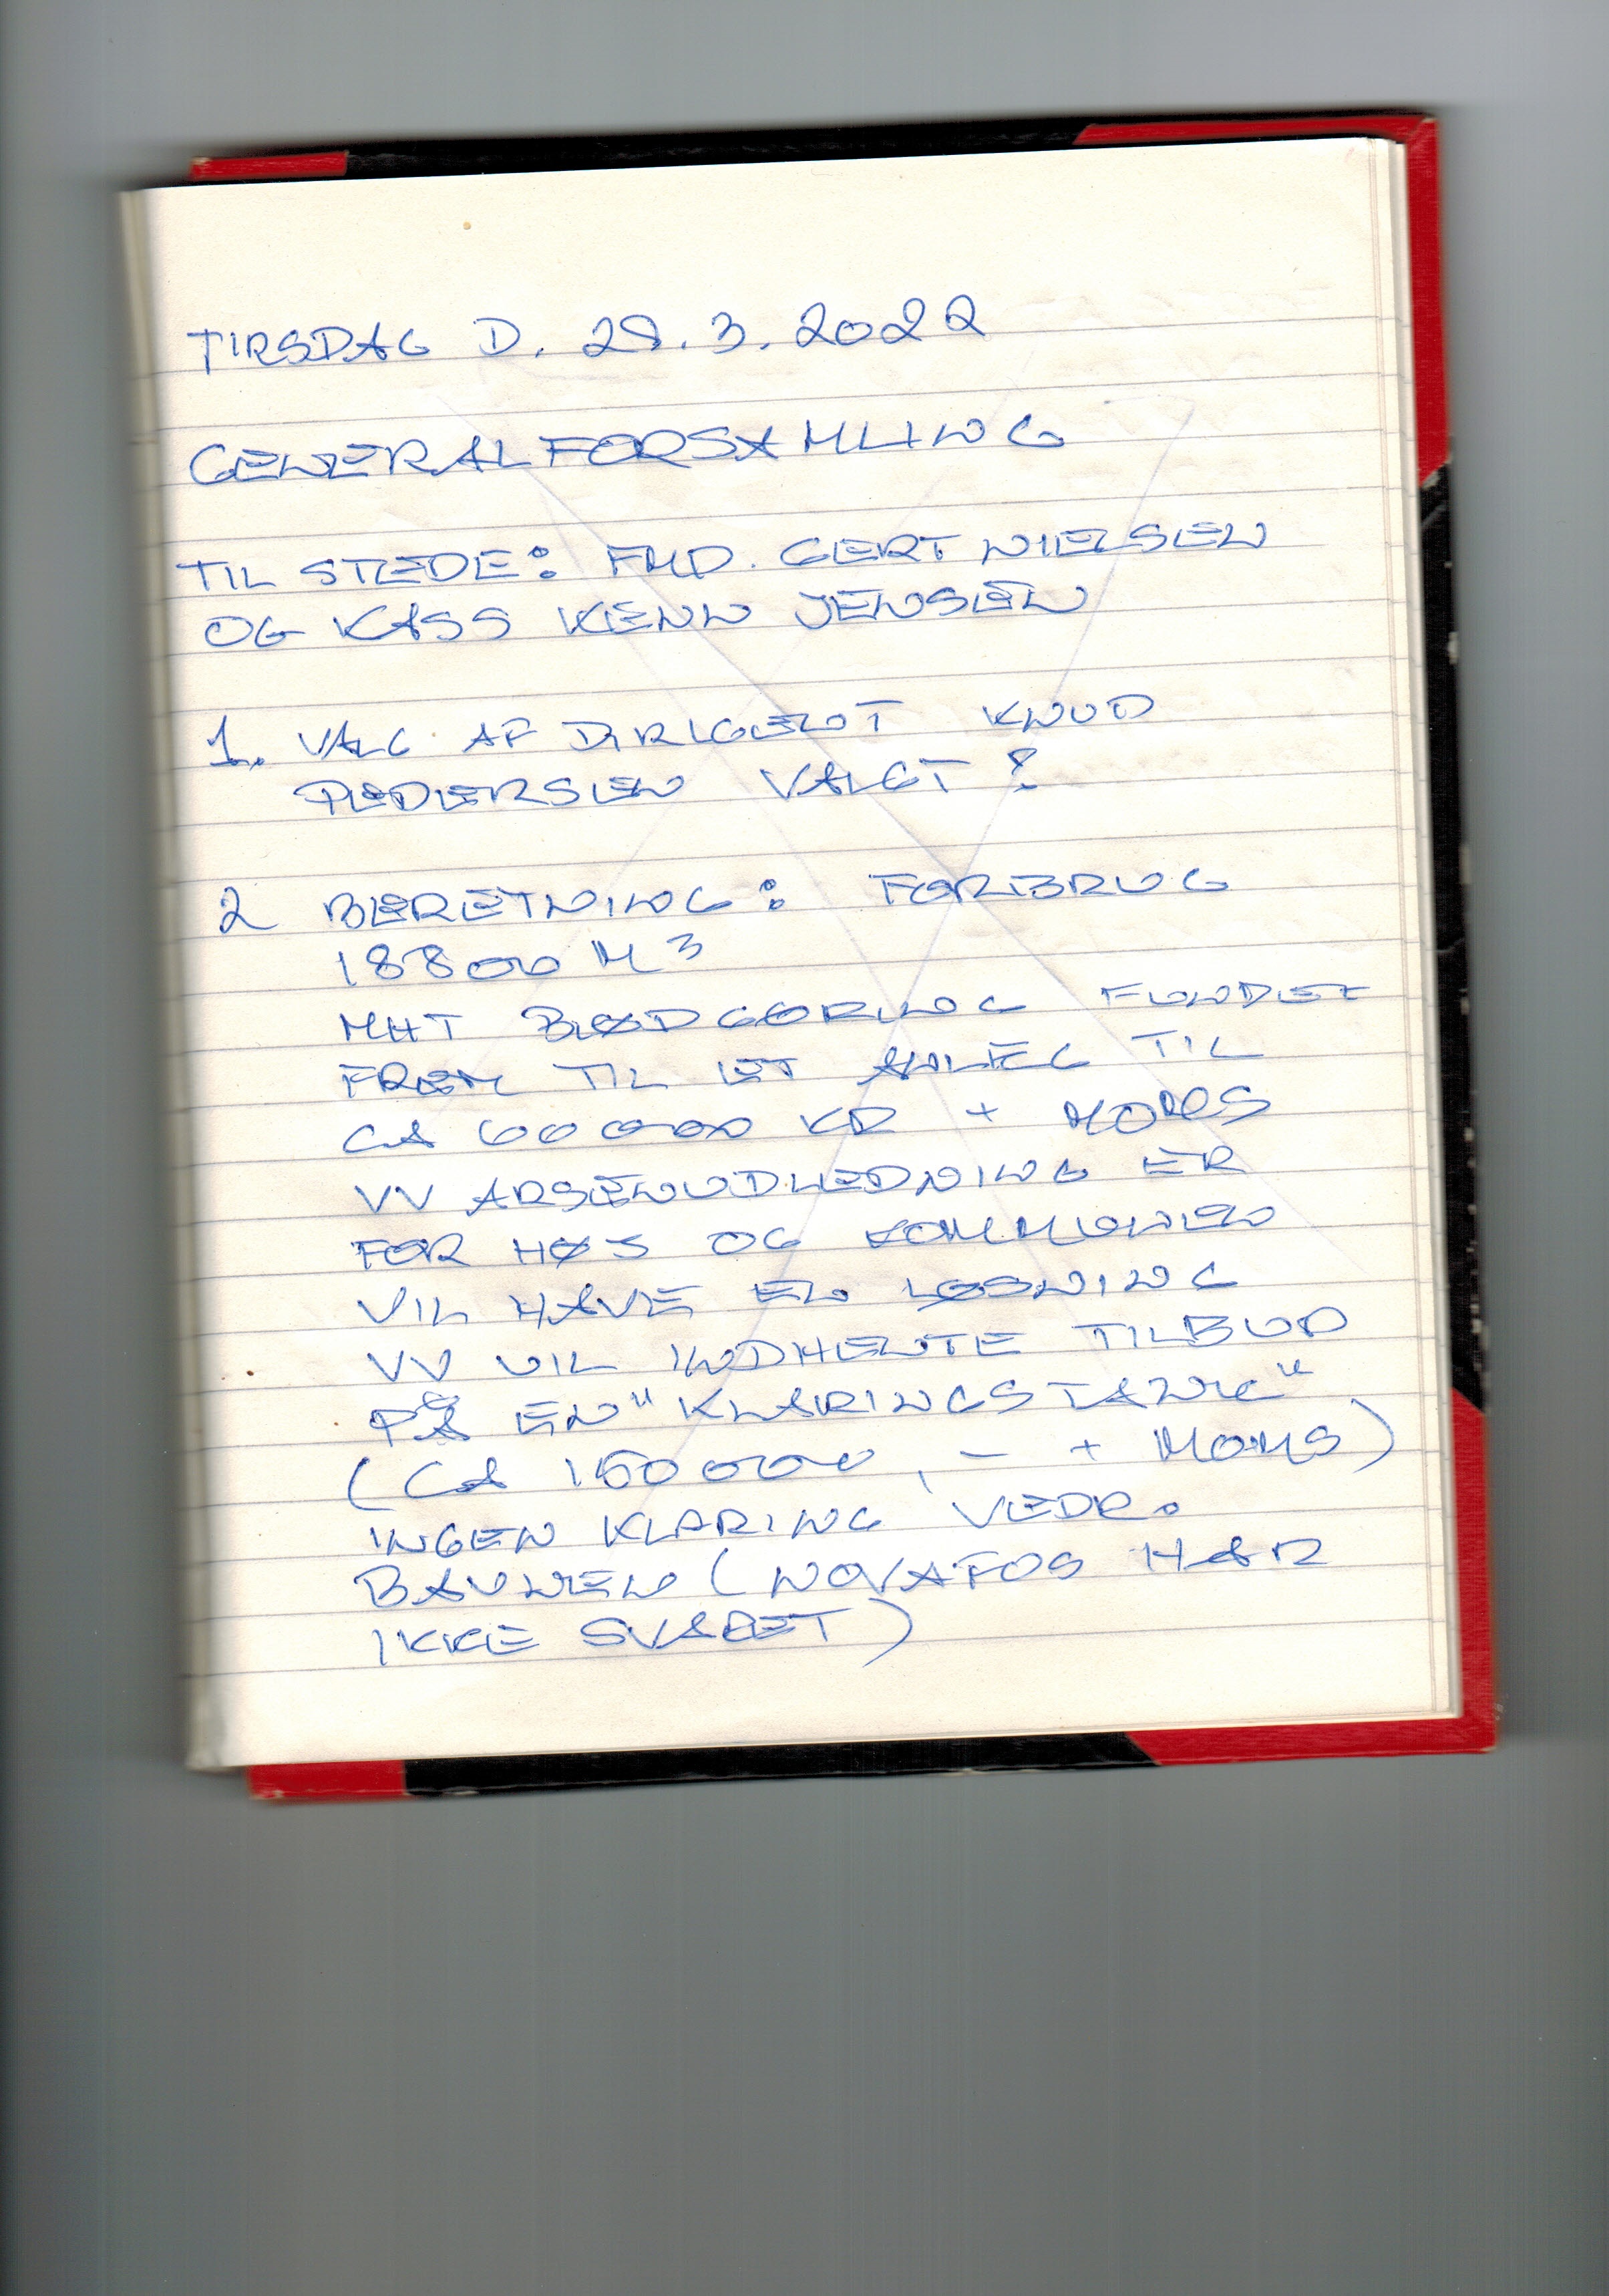 TIRSDAG D. 29.3.2022
GENERALFORSAMLING
TIL STEDE: FMD. GERT NIELSEN
OG KASS KENN JENSEN
1. VALG AF DIRIGENT KNUD
PEDERSEN VALGT!
2 BERETNING: FORBRUG
18800 M³
MHT BLØDGØRING FUNDET
FREM TIL ET ANLÆG TIL
CA 60000 KR + MOMS
VV ARSENUDLEDNING ER
FOR HØJ OG KOMMUNEN
VIL HAVE EN LØSNING
VV VIL INDHENTE TILBUD
PÅ EN "KLARINGSTANK"
(CA 150000,- + MOMS)
INGEN KLARING VEDR.
BAUNEN (NOVAFOS HAR
IKKE SVARET)